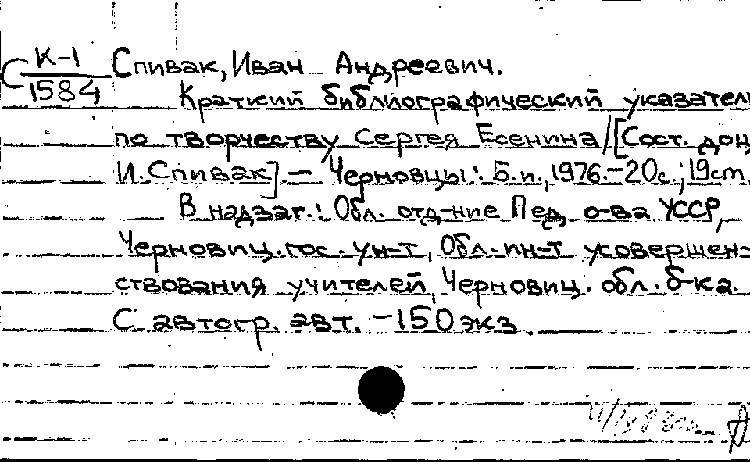 С К-1
1584
Спивак, Иван Андреевич.
Краткий библиографический указател
по творчеству Сергея Есенина/[Сост. доц
И. Спивак]. — Черновцы: Б.и., 1976. — 20с.; 19см.
В надзаг.: Обл. отд-ние Пед. о-ва УССР,
Черновиц. гос. ун-т, Обл. ин-т усовершен-
ствования учителей, Черновиц. обл. б-ка.
С автогр. авт. — 150 экз.